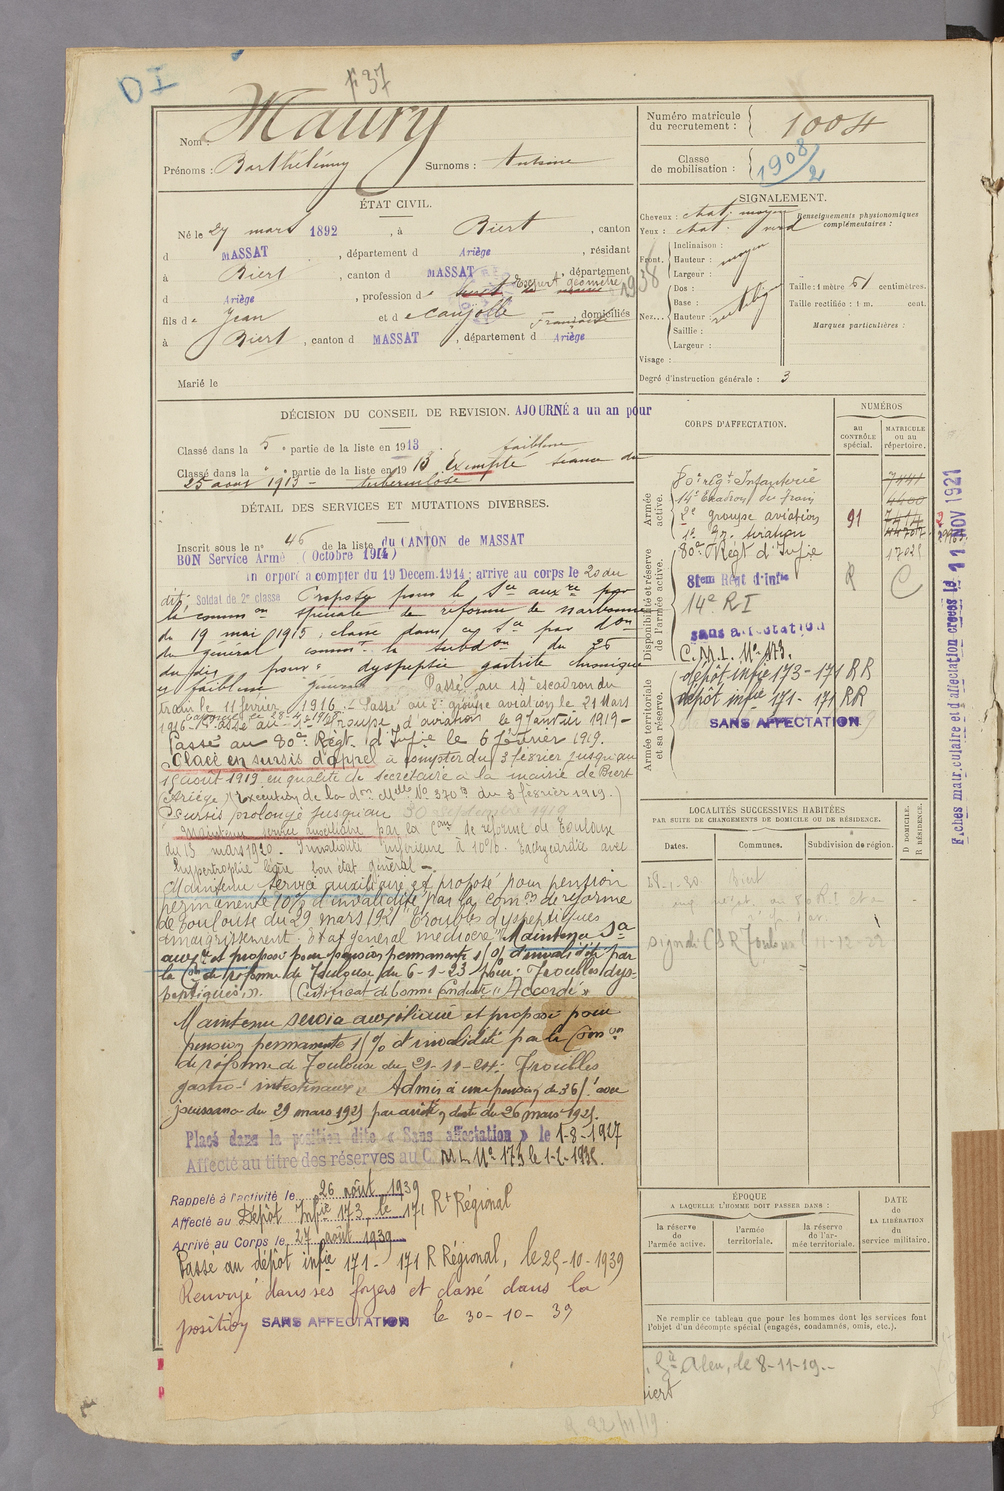 DI
F 37
Nom : Maury
Prénoms : Barthélémy Surnoms : Antoine
ÉTAT CIVIL.
Né le 27 mars 1892, à Biert, canton
d MASSAT, département d Ariège, résidant
à Biert, canton d MASSAT, département
d Ariège, profession d Expert géomètre
fils de Jean et de Caujolle, domiciliés
Française
à Biert, canton d MASSAT, département d Ariège
Marié le
Numéro matricule du recrutement : 1004
Classe de mobilisation : 1908/2
1938
SIGNALEMENT.
Cheveux : chat. moyen
Yeux : chat.
Front. Inclinaison :
Hauteur : moyen
Largeur :
Nez... Dos :
Base :
Hauteur : rectilig
Saillie :
Largeur :
Visage :
Degré d'instruction générale : 3
Renseignements physionomiques complémentaires :
Taille : 1 mètre 51 centimètres.
Taille rectifiée : 1 m. cent.
Marques particulières :
DÉCISION DU CONSEIL DE REVISION. AJOURNÉ a un an pour
faiblesse
Classé dans la 5e partie de la liste en 1913
Classé dans la " partie de la liste en 1913 Exempté séance du
25 août 1913 - tuberculose
DÉTAIL DES SERVICES ET MUTATIONS DIVERSES.
Inscrit sous le n° 46 de la liste du CANTON de MASSAT
BON Service Armé (Octobre 1914)
Incorporé à compter du 19 Decem. 1914 : arrive au corps le 20 du
dit. Soldat de 2e classe Proposé pour le Sce auxre par
la common spéciale de réforme de Narbonne
du 19 mai 1915, classé dans ce Sce par don
du général commt la subdon du 26
du dis pour " dyspeptie gastrite chronique
et faiblesse générale Passé au 14e escadron du
train le 11 février 1916. Passé au 2e groupe aviation le 21 Mars
1916. Passé au 1er Groupe d'aviation le 9 Janvier 1919 -
Passé au 80e Régt. d'Infie le 6 février 1919.
Placé en sursis d'appel à compter du 3 février jusqu'au
15 août 1919 en qualité de secrétaire à la mairie de Biert
(Ariège) (exécution de la don Melle No 3703 du 3 février 1919.)
Sursis prolongé jusqu'au 30 Septembre 1919
Maintenu service auxiliaire par la Con de réforme de Toulouse
du 13 mars 1920. Invalidité inférieure à 10%. Tachycardie avec
hypertrophie légère bon état général -
Maintenu Service auxiliaire et proposé pour pension
permanente 10% d'invalidité par la Comon de réforme
de Toulouse du 29 mars 1921 "Troubles dyspeptiques
amaigrissement. Etat général médiocre" Maintenu Sce
auxre et proposé pour pension permanente 15% d'invalidité par
la Con de réforme de Toulouse du 6-1-23 pour : Troubles dys-
peptiques ". (Certificat de bonne conduite "Accordé")
Maintenu service auxiliaire et proposé pour
pension permanente 15% d'invalidité par la Comon
de réforme de Toulouse du 21-11-24 : Troubles
gastro-intestinaux. Admis à une pension de 36 f. avec
jouissance du 29 mars 1921 par arrêté en date du 26 mars 1925.
Placé dans la position dite « Sans affectation » le 1-8-1927
Affecté au titre des réserves au C. M. L. No 173 le 1-2-1938.
Rappelé à l'activité le 26 août 1939
Affecté au Dépôt Infie 173 le 171 Rt Régional
Arrivé au Corps le 27 août 1939
Passé au dépôt infie 171 - 171 R Régional, le 25-10-1939
Renvoyé dans ses foyers et classé dans la
position SANS AFFECTATION le 30-10-39
CORPS D'AFFECTATION.
NUMÉROS
au CONTRÔLE spécial.
MATRICULE ou au répertoire.
Armée active.
80e régt Infanterie 7441
14e Escadron du train
2e groupe aviation 91
1er Gr. aviation
Disponibilité et réserve de l'armée active.
80e Régt d'Infie
81em Régt d'Infie R C
14e RI
sans affectation
C. M. L. No 173.
Armée territoriale et sa réserve.
dépôt infie 173 - 171 RR
dépôt infie 171 - 171 RR
SANS AFFECTATION
Fiches matriculaire et d'affectation créées le 11 NOV 1921
LOCALITÉS SUCCESSIVES HABITÉES
PAR SUITE DE CHANGEMENTS DE DOMICILE OU DE RÉSIDENCE.
Dates. Communes. Subdivision de région. D DOMICILE. R RÉSIDENCE.
18-1-20 Biert
signalé CSR Toulouse 11-12-22
ÉPOQUE
A LAQUELLE L'HOMME DOIT PASSER DANS :
la réserve de l'armée active.
l'armée territoriale.
la réserve de l'armée territoriale.
DATE de LA LIBÉRATION du service militaire.
Ne remplir ce tableau que pour les hommes dont les services font
l'objet d'un décompte spécial (engagés, condamnés, omis, etc.).
Aleu, le 8-11-19.-
Biert
22/11/19